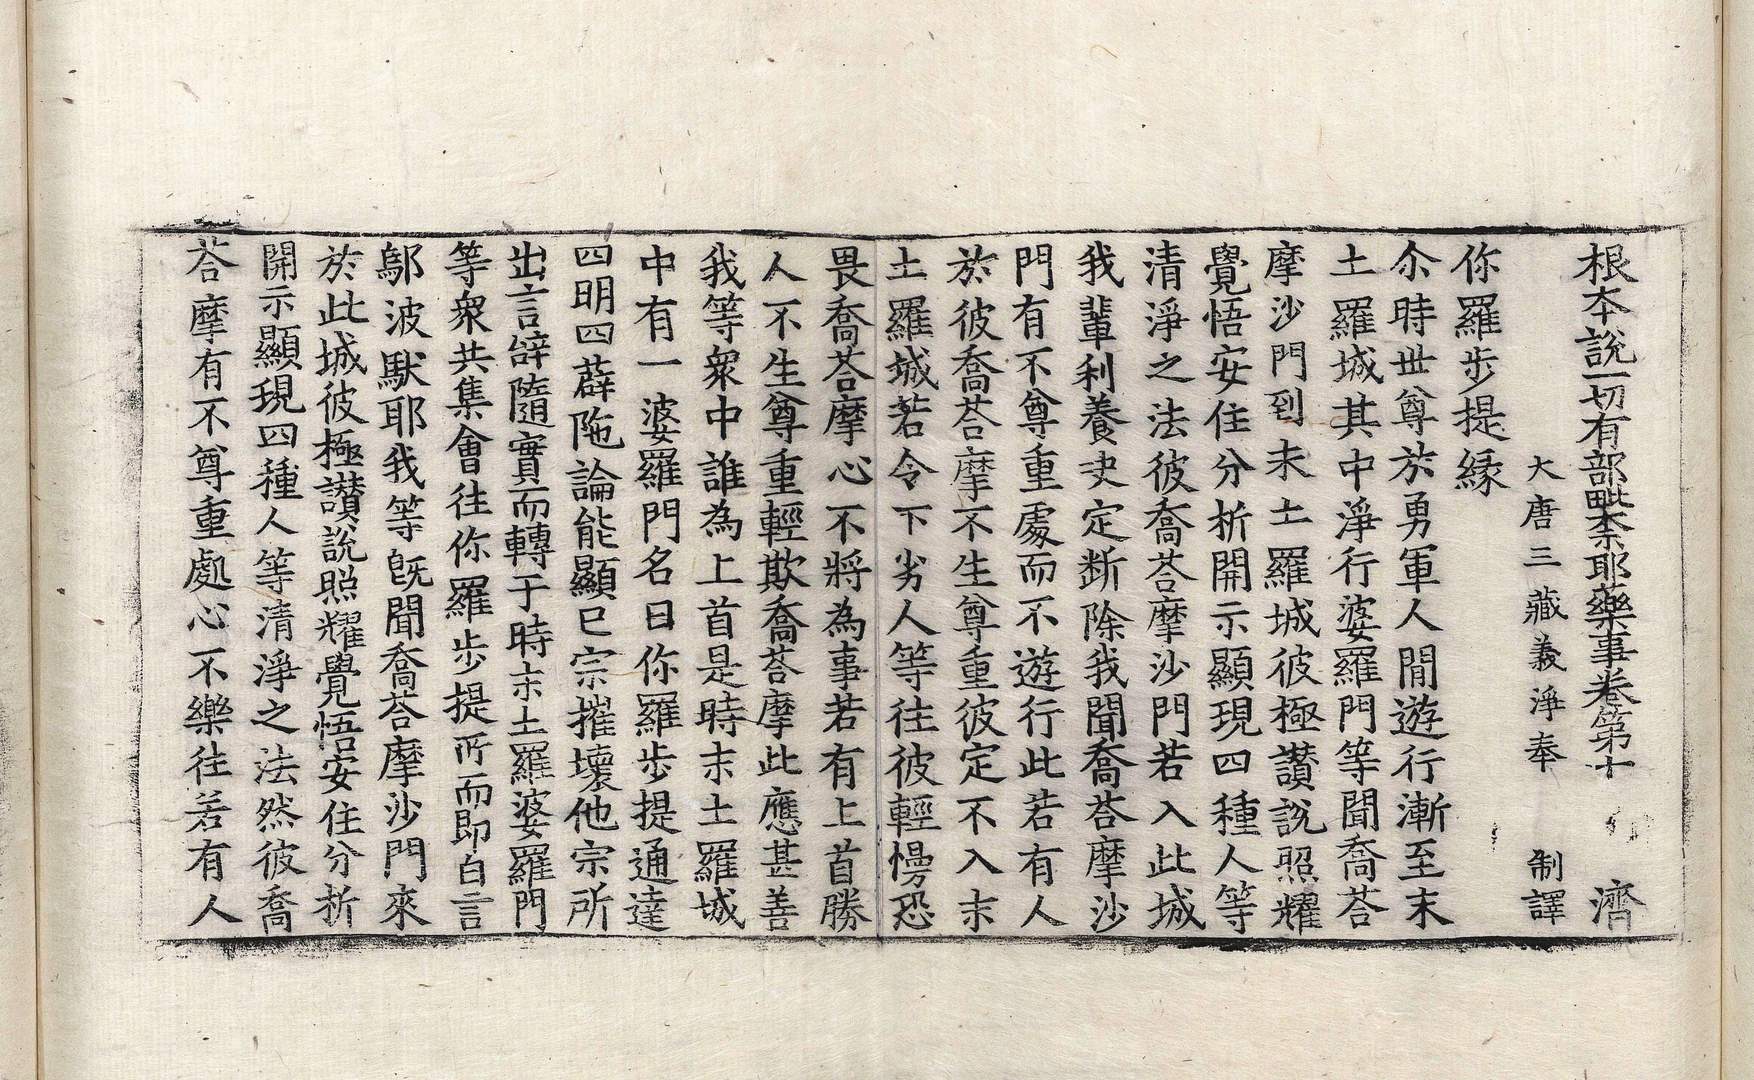 根本說一切有部毗柰耶藥事卷第十　濟
大唐三藏義淨奉　制譯
你羅步提緣
尒時世尊於勇軍人間遊行漸至末
土羅城其中淨行婆羅門等聞喬荅
摩沙門到末土羅城彼極讃說照耀
覺悟安住分析開示顯現四種人等
清淨之法彼喬荅摩沙門若入此城
我輩利養史定断除我聞喬荅摩沙
門有不尊重處而不遊行此若有人
於彼喬荅摩不生尊重彼定不入末
土羅城若令下劣人等往彼輕慢恐
畏喬荅摩心不將為事若有上首勝
人不生尊重輕欺喬荅摩此應甚善
我等衆中誰為上首是時末土羅城
中有一婆羅門名曰你羅步提通達
四明四薜陁論能顯已宗摧壞他宗所
出言辝隨實而轉于時末土羅婆羅門
等衆共集會往你羅步提所而即白言
鄔波馱耶我等旣聞喬荅摩沙門來
於此城彼極讃說照耀覺悟安住分析
開示顯現四種人等清淨之法然彼喬
荅摩有不尊重處心不樂往若有人